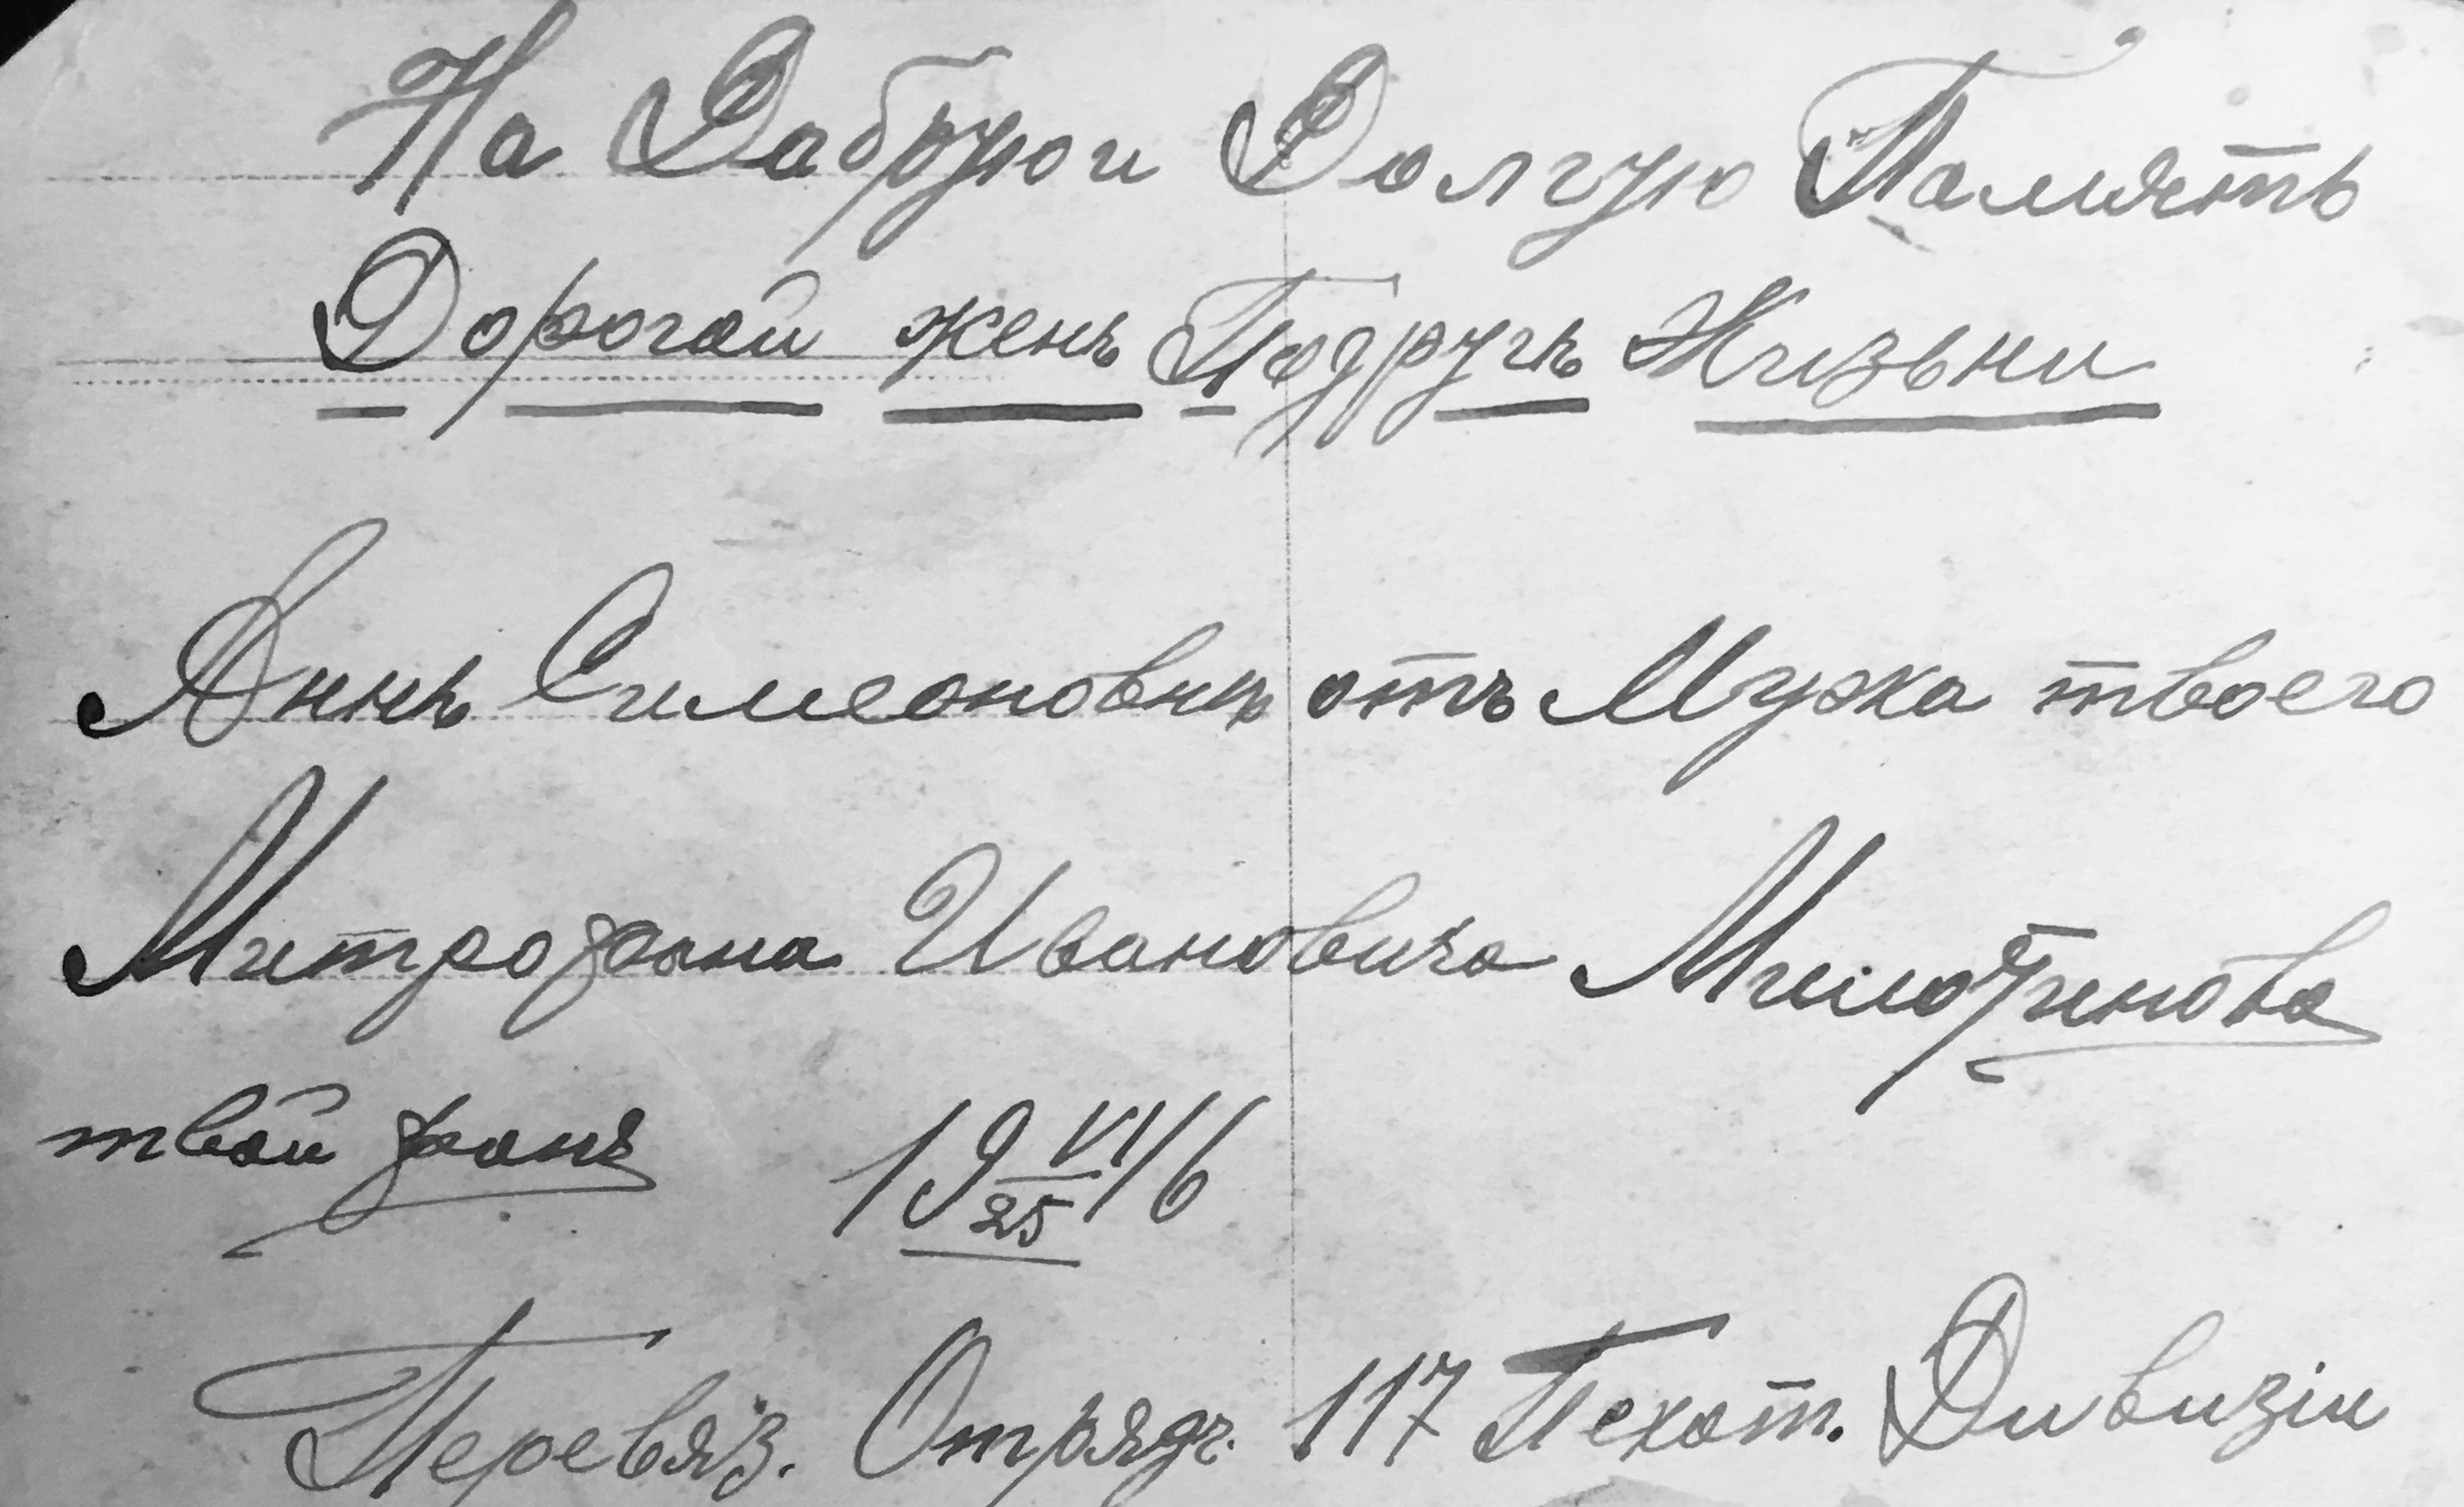 На Дабрую и Долгую Память
Дорогой женѣ Подругѣ Жизьни
Аннѣ Симеоновнѣ отъ Мужа твоего
Митрофана Ивановича
твой фанъ 19 VI/25 16
Перевяз. Отрядъ. 117 Пехот. Дивизіи